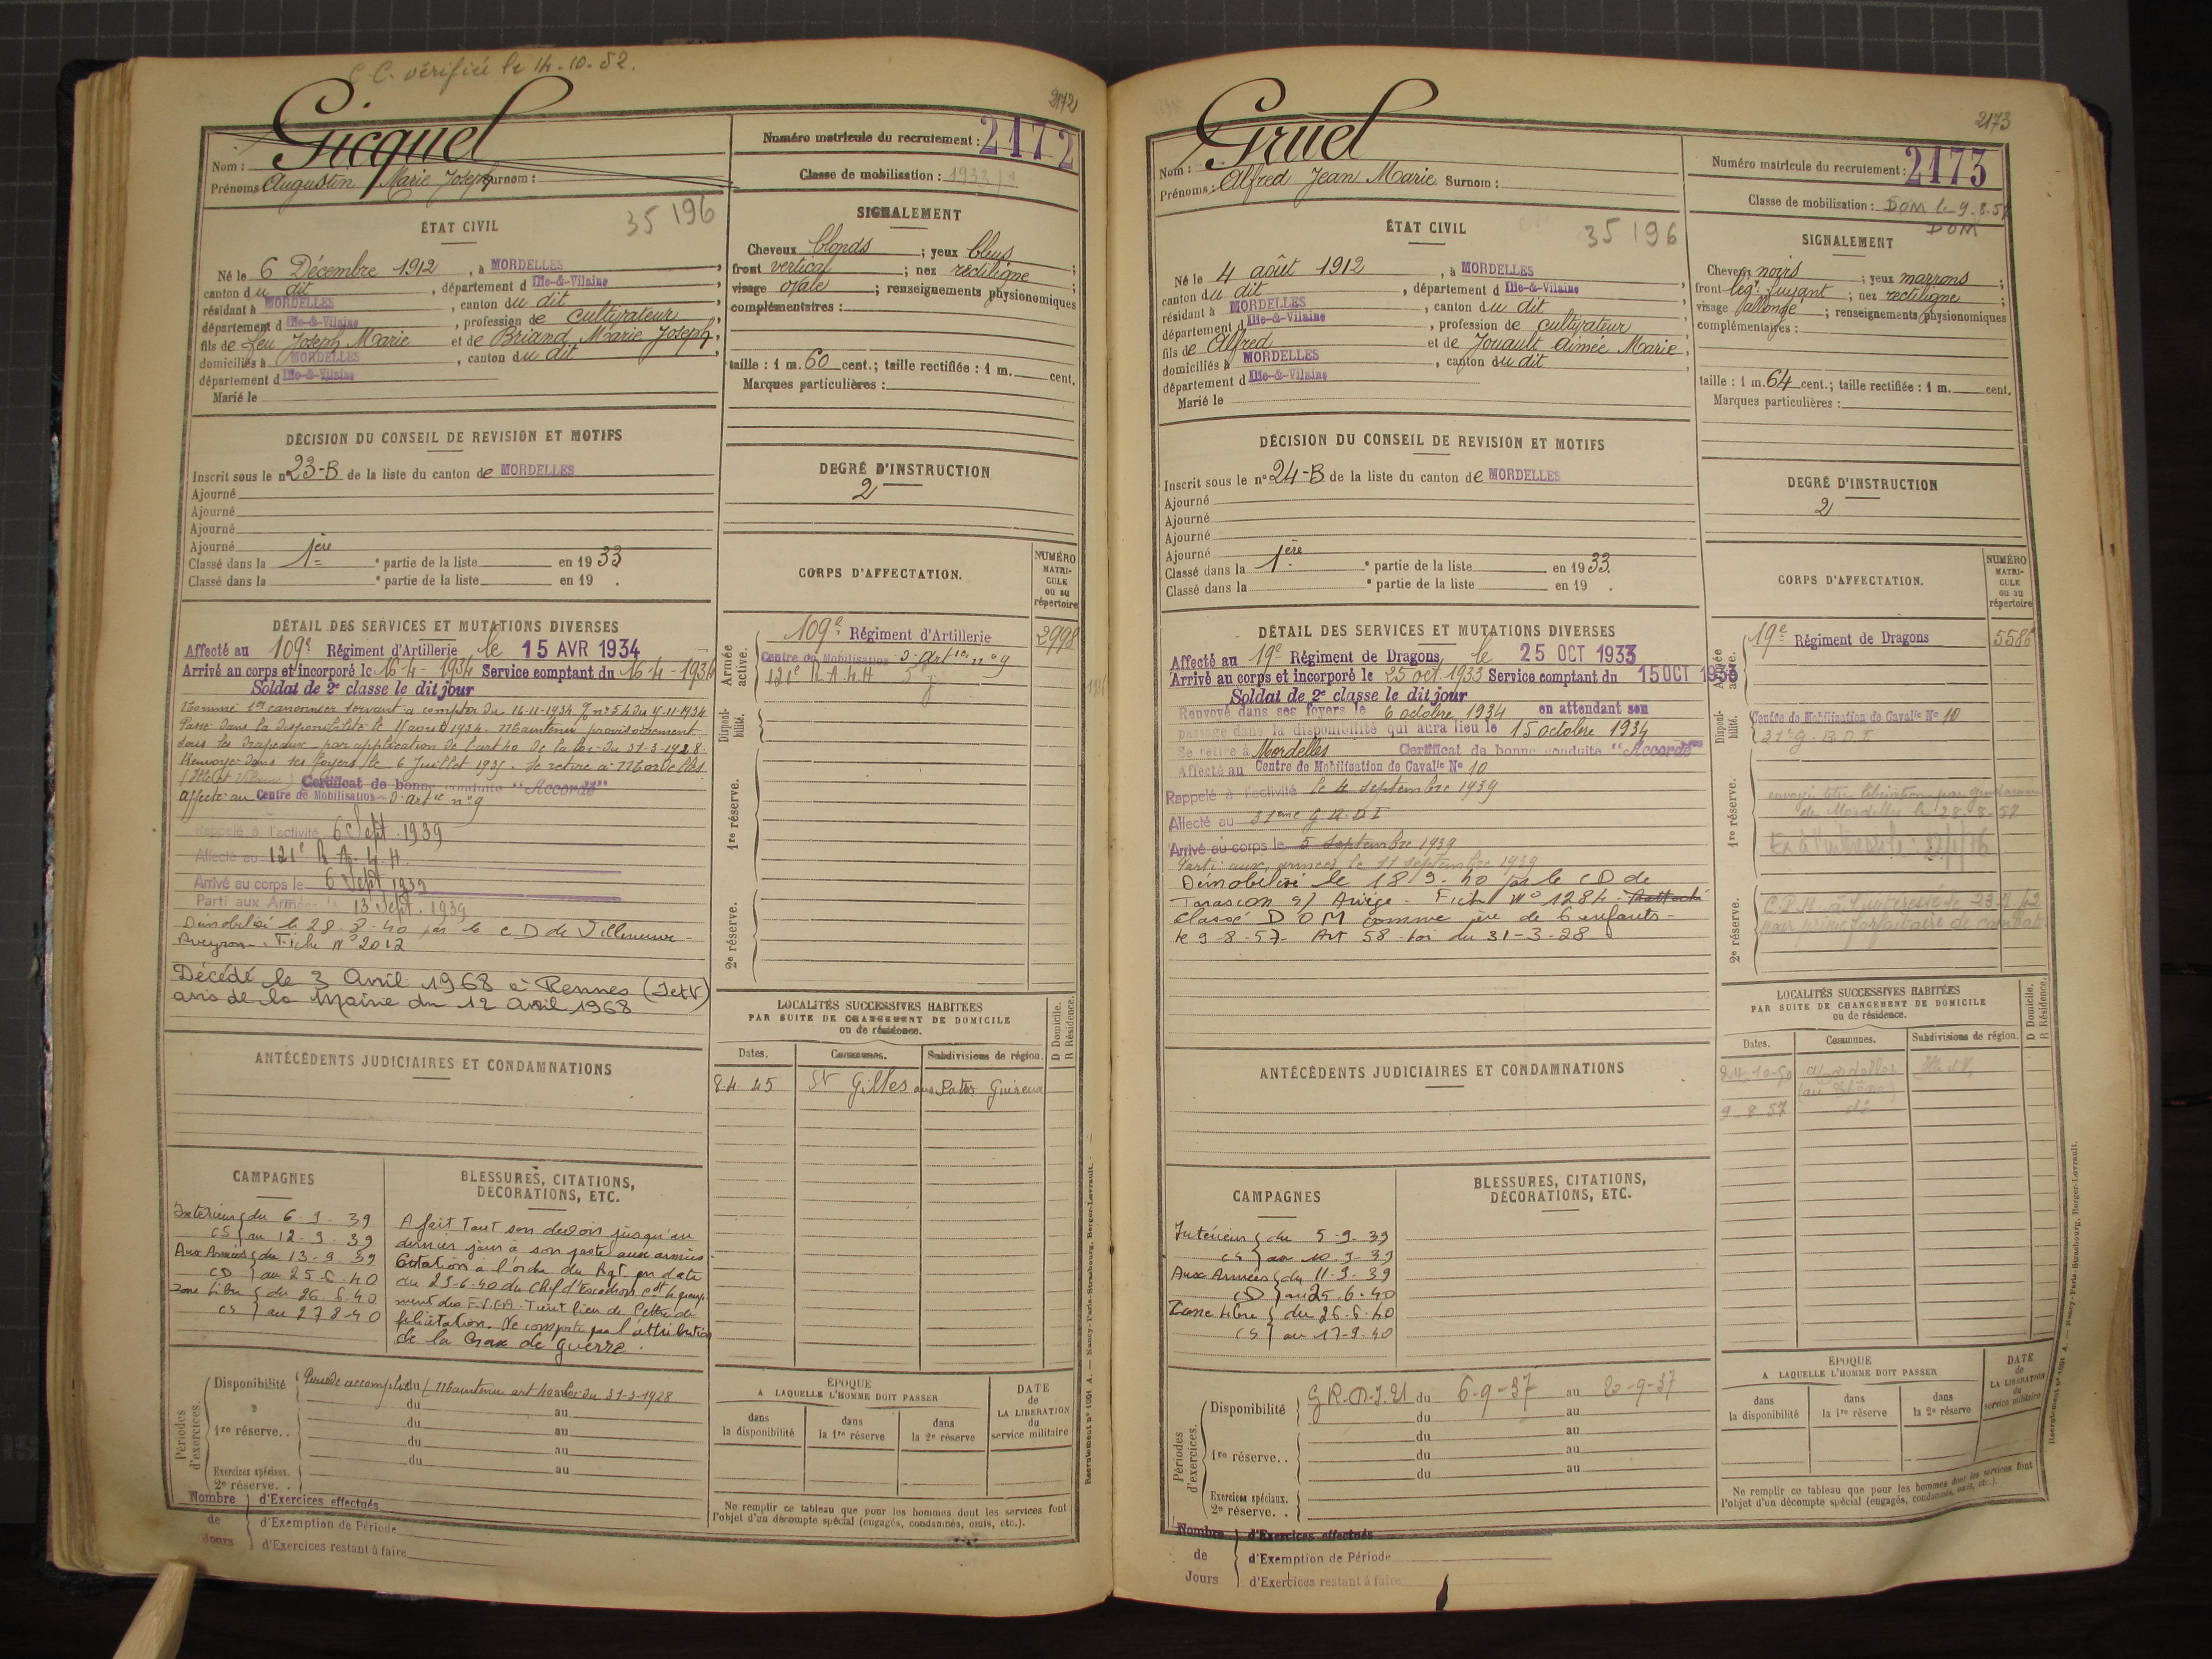 C.C. vérifiée le 14.10.52.
2172
Gicquel
Nom :
Prénoms Augustin Marie Joseph Surnom :
Numéro matricule du recrutement : 2172
Classe de mobilisation : 1933/1
35 196
ÉTAT CIVIL
Né le 6 Décembre 1912, à MORDELLES,
canton du dit, département d Ille-&-Vilaine
résidant à MORDELLES, canton du dit,
département d Ille-&-Vilaine, profession de cultivateur,
fils de feu Joseph Marie et de Briand Marie Joseph,
domiciliés à MORDELLES, canton du dit,
département d Ille-&-Vilaine
Marié le
SIGNALEMENT
Cheveux blonds ; yeux bleus ;
front vertical ; nez rectiligne ;
visage ovale ; renseignements physionomiques
complémentaires :
taille : 1 m. 60 cent.; taille rectifiée : 1 m. cent.
Marques particulières :
DÉCISION DU CONSEIL DE REVISION ET MOTIFS
Inscrit sous le n° 23-B de la liste du canton de MORDELLES
Ajourné
Ajourné
Ajourné
Ajourné
Classé dans la 1ère partie de la liste en 1933
Classé dans la partie de la liste en 19 .
DEGRÉ D'INSTRUCTION
2
DÉTAIL DES SERVICES ET MUTATIONS DIVERSES
Affecté au 109e Régiment d'Artillerie le 15 AVR 1934
Arrivé au corps et incorporé le 16-4-1934 Service comptant du 16-4-1934
Soldat de 2e classe le dit jour
Nommé 1er canonnier servant à compter du 16-11-1934
Passé dans la disponibilité le Maintenu provisoirement
sous les drapeaux par application de l'art 40 de la loi du 31-3-1928.
Renvoyé dans ses foyers le 6 Juillet 1935. Se retire à Mordelles
(Ille et Vilaine) Certificat de bonne conduite "Accordé"
Affecté au Centre de Mobilisation d'artie n° 9
Rappelé à l'activité 6 Sept. 1939
Affecté au 121e R.A.L.H.
Arrivé au corps le 6 Sept 1939
Parti aux Armées le 13 Sept. 1939
Démobilisé le 28.8.40 par le CD de Villeneuve-
Aveyron. Fiche N° 2012
Décédé le 3 Avril 1968 à Rennes (I et V)
avis de la Mairie du 12 Avril 1968
CORPS D'AFFECTATION.
NUMÉRO MATRI-CULE ou au répertoire
Armée active.
109e Régiment d'Artillerie 2998
Centre de Mobilisation d'artie n° 9
121e R.A.L.H
Disponi-bilité.
1re réserve.
2e réserve.
LOCALITÉS SUCCESSIVES HABITÉES
PAR SUITE DE CHANGEMENT DE DOMICILE
ou de résidence.
D Domicile.
R Résidence.
Dates. Communes. Subdivisions de région.
8 4 45 St Gilles
ANTÉCÉDENTS JUDICIAIRES ET CONDAMNATIONS
CAMPAGNES
Intérieur du 6.9.39
CS au 12.9.39
Aux Armées du 13.9.39
CD au 25.6.40
Zone Libre du 26.6.40
CS au 27 8 40
BLESSURES, CITATIONS,
DÉCORATIONS, ETC.
A fait tout son devoir jusqu'au
dernier jour à son poste aux armées
Citation à l'ordre du Rgt en date
du 25-6-40 du Chef d'Escadron
Tient lieu de lettre de
félicitation. Ne comporte pas l'attribution
de la Croix de guerre.
Périodes d'exercices.
Disponibilité Période accomplie du Maintenu art 40 loi du 31-3-1928
du au
1re réserve. . du au
du au
du au
Exercices spéciaux.
2e réserve. .
Nombre de Jours
d'Exercices effectués
d'Exemption de Période
d'Exercices restant à faire
ÉPOQUE
A LAQUELLE L'HOMME DOIT PASSER
DATE de LA LIBÉRATION du service militaire
dans la disponibilité
dans la 1re réserve
dans la 2e réserve
Ne remplir ce tableau que pour les hommes dont les services font
l'objet d'un décompte spécial (engagés, condamnés, omis, etc.).
Recrutement n° 1091 A. — Nancy-Paris-Strasbourg, Berger-Levrault.
2173
Gruel
Nom :
Prénoms : Alfred Jean Marie Surnom :
Numéro matricule du recrutement : 2173
Classe de mobilisation : DOM le 9.8.57
DOM
35 196
ÉTAT CIVIL
Né le 4 août 1912, à MORDELLES
canton du dit, département d Ille-&-Vilaine
résidant à MORDELLES, canton du dit
département d Ille-&-Vilaine, profession de cultivateur
fils de Alfred et de Jouault Aimée Marie,
domiciliés à MORDELLES, canton du dit
département d Ille-&-Vilaine
Marié le
SIGNALEMENT
Cheveux noirs ; yeux marrons ;
front légt fuyant ; nez rectiligne ;
visage allongé ; renseignements physionomiques
complémentaires :
taille : 1 m. 64 cent.; taille rectifiée : 1 m. cent.
Marques particulières :
DÉCISION DU CONSEIL DE REVISION ET MOTIFS
Inscrit sous le n° 24-B de la liste du canton de MORDELLES
Ajourné
Ajourné
Ajourné
Ajourné
Classé dans la 1ère partie de la liste en 1933.
Classé dans la partie de la liste en 19 .
DEGRÉ D'INSTRUCTION
2
DÉTAIL DES SERVICES ET MUTATIONS DIVERSES
Affecté au 19e Régiment de Dragons le 25 OCT 1933
Arrivé au corps et incorporé le 25 oct 1933 Service comptant du 15 OCT 1933
Soldat de 2e classe le dit jour
Renvoyé dans ses foyers le 6 octobre 1934 en attendant son
passage dans la disponibilité qui aura lieu le 15 octobre 1934
Se retire à Mordelles Certificat de bonne conduite "Accordé"
Affecté au Centre de Mobilisation de Cavalie N° 10
Rappelé à l'activité le 4 septembre 1939
Affecté au 31ème G.R.D.I
Arrivé au corps le 5 septembre 1939
Parti aux armées le 11 septembre 1939
Démobilisé le 18.9.40 par le CD de
Tarascon s/ Ariège. Fiche N° 1284.
Classé D O M comme père de 6 enfants-
le 9-8-57. Art 58. Loi du 31-3-28
CORPS D'AFFECTATION.
NUMÉRO MATRI-CULE ou au répertoire
Armée active.
19e Régiment de Dragons 5586
Disponi-bilité.
Centre de Mobilisation de Cavalie N° 10
31e G.R.D.I
1re réserve.
envoyé titre libération par gendarmerie
de Mordelles le 28-8-57
2e réserve.
pour prime forfaitaire de combat
LOCALITÉS SUCCESSIVES HABITÉES
PAR SUITE DE CHANGEMENT DE DOMICILE
ou de résidence.
D Domicile.
R Résidence.
Dates. Communes. Subdivisions de région.
24.10.50 Mordelles Ille et V.
9-8-57 do
ANTÉCÉDENTS JUDICIAIRES ET CONDAMNATIONS
CAMPAGNES
Intérieur du 5.9.39
CS au 10.9.39
Aux Armées du 11-9-39
CD au 25.6.40
Zone Libre du 26.6.40
CS au 17-9-40
BLESSURES, CITATIONS,
DÉCORATIONS, ETC.
Périodes d'exercices.
Disponibilité du 6-9-37 au 20-9-37
du au
1re réserve. . du au
du au
du au
Exercices spéciaux.
2e réserve. .
Nombre de Jours
d'Exercices effectués
d'Exemption de Période
d'Exercices restant à faire
ÉPOQUE
A LAQUELLE L'HOMME DOIT PASSER
DATE de LA LIBÉRATION du service militaire
dans la disponibilité
dans la 1re réserve
dans la 2e réserve
Ne remplir ce tableau que pour les hommes dont les services font
l'objet d'un décompte spécial (engagés, condamnés, omis, etc.).
Recrutement n° 1091 A. — Nancy-Paris-Strasbourg, Berger-Levrault.